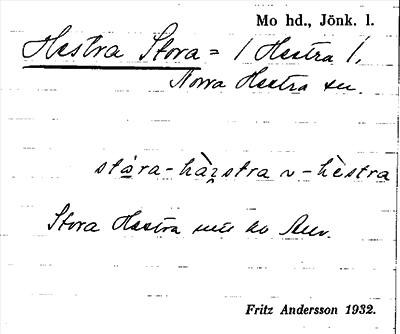 Mo hd., Jönk. l.
Hestra Stora = / Hestra /,
Norra Hestra sn.
stára-hæ̀stra ~ -hèstra
Stora Hestra
Fritz Andersson 1932.